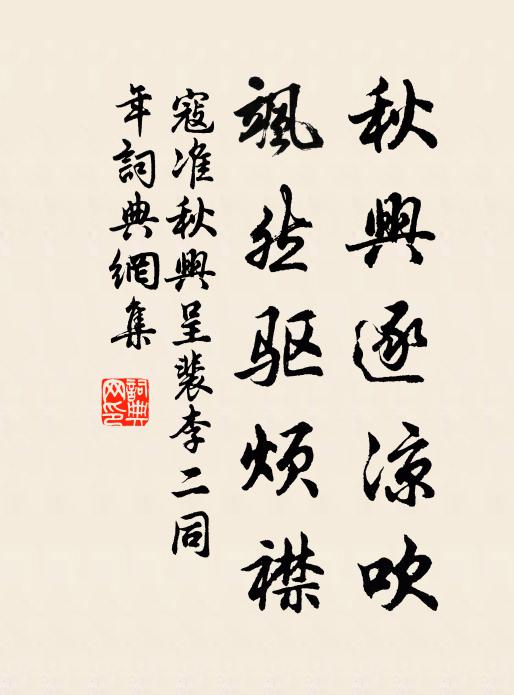 秋興逐涼吹
颯然驱烦襟
寇准秋興呈裴李二同
年詞典網集
詞典
网印